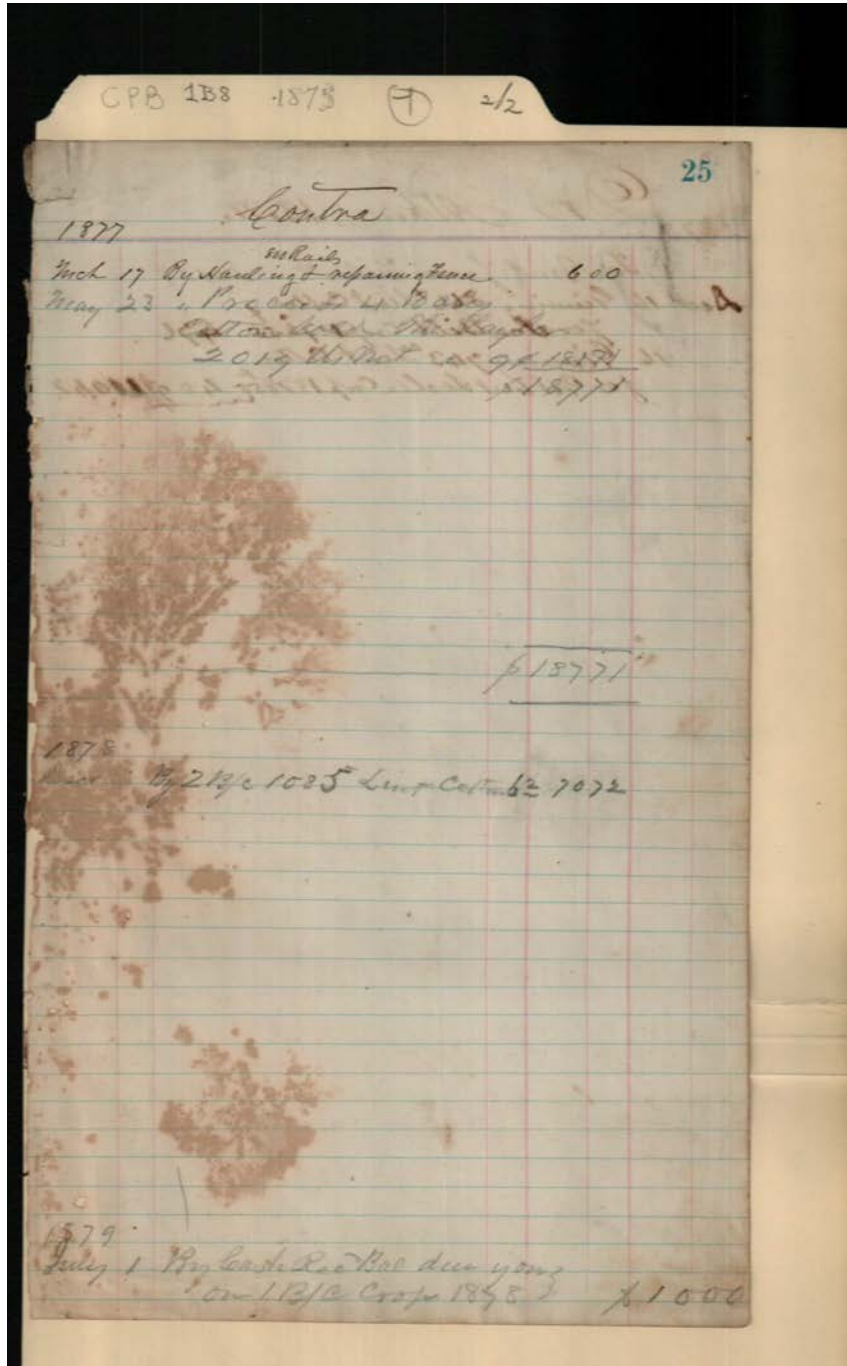 CPB 1B8 1873 T 2/2
25
Contra
1877
500 Rails
Mch 17 By Hauling & repairing Fence 600
May 23 " Proceeds 4 Bales
Cotton
2019 9¢ 18171
18771
$18771
1878
By 2 B/C 1085 Lint Cotton 6½ 7072
1879
July 1 By Cash Rec Bal due
on 1 B/C Crop 1878 $1000